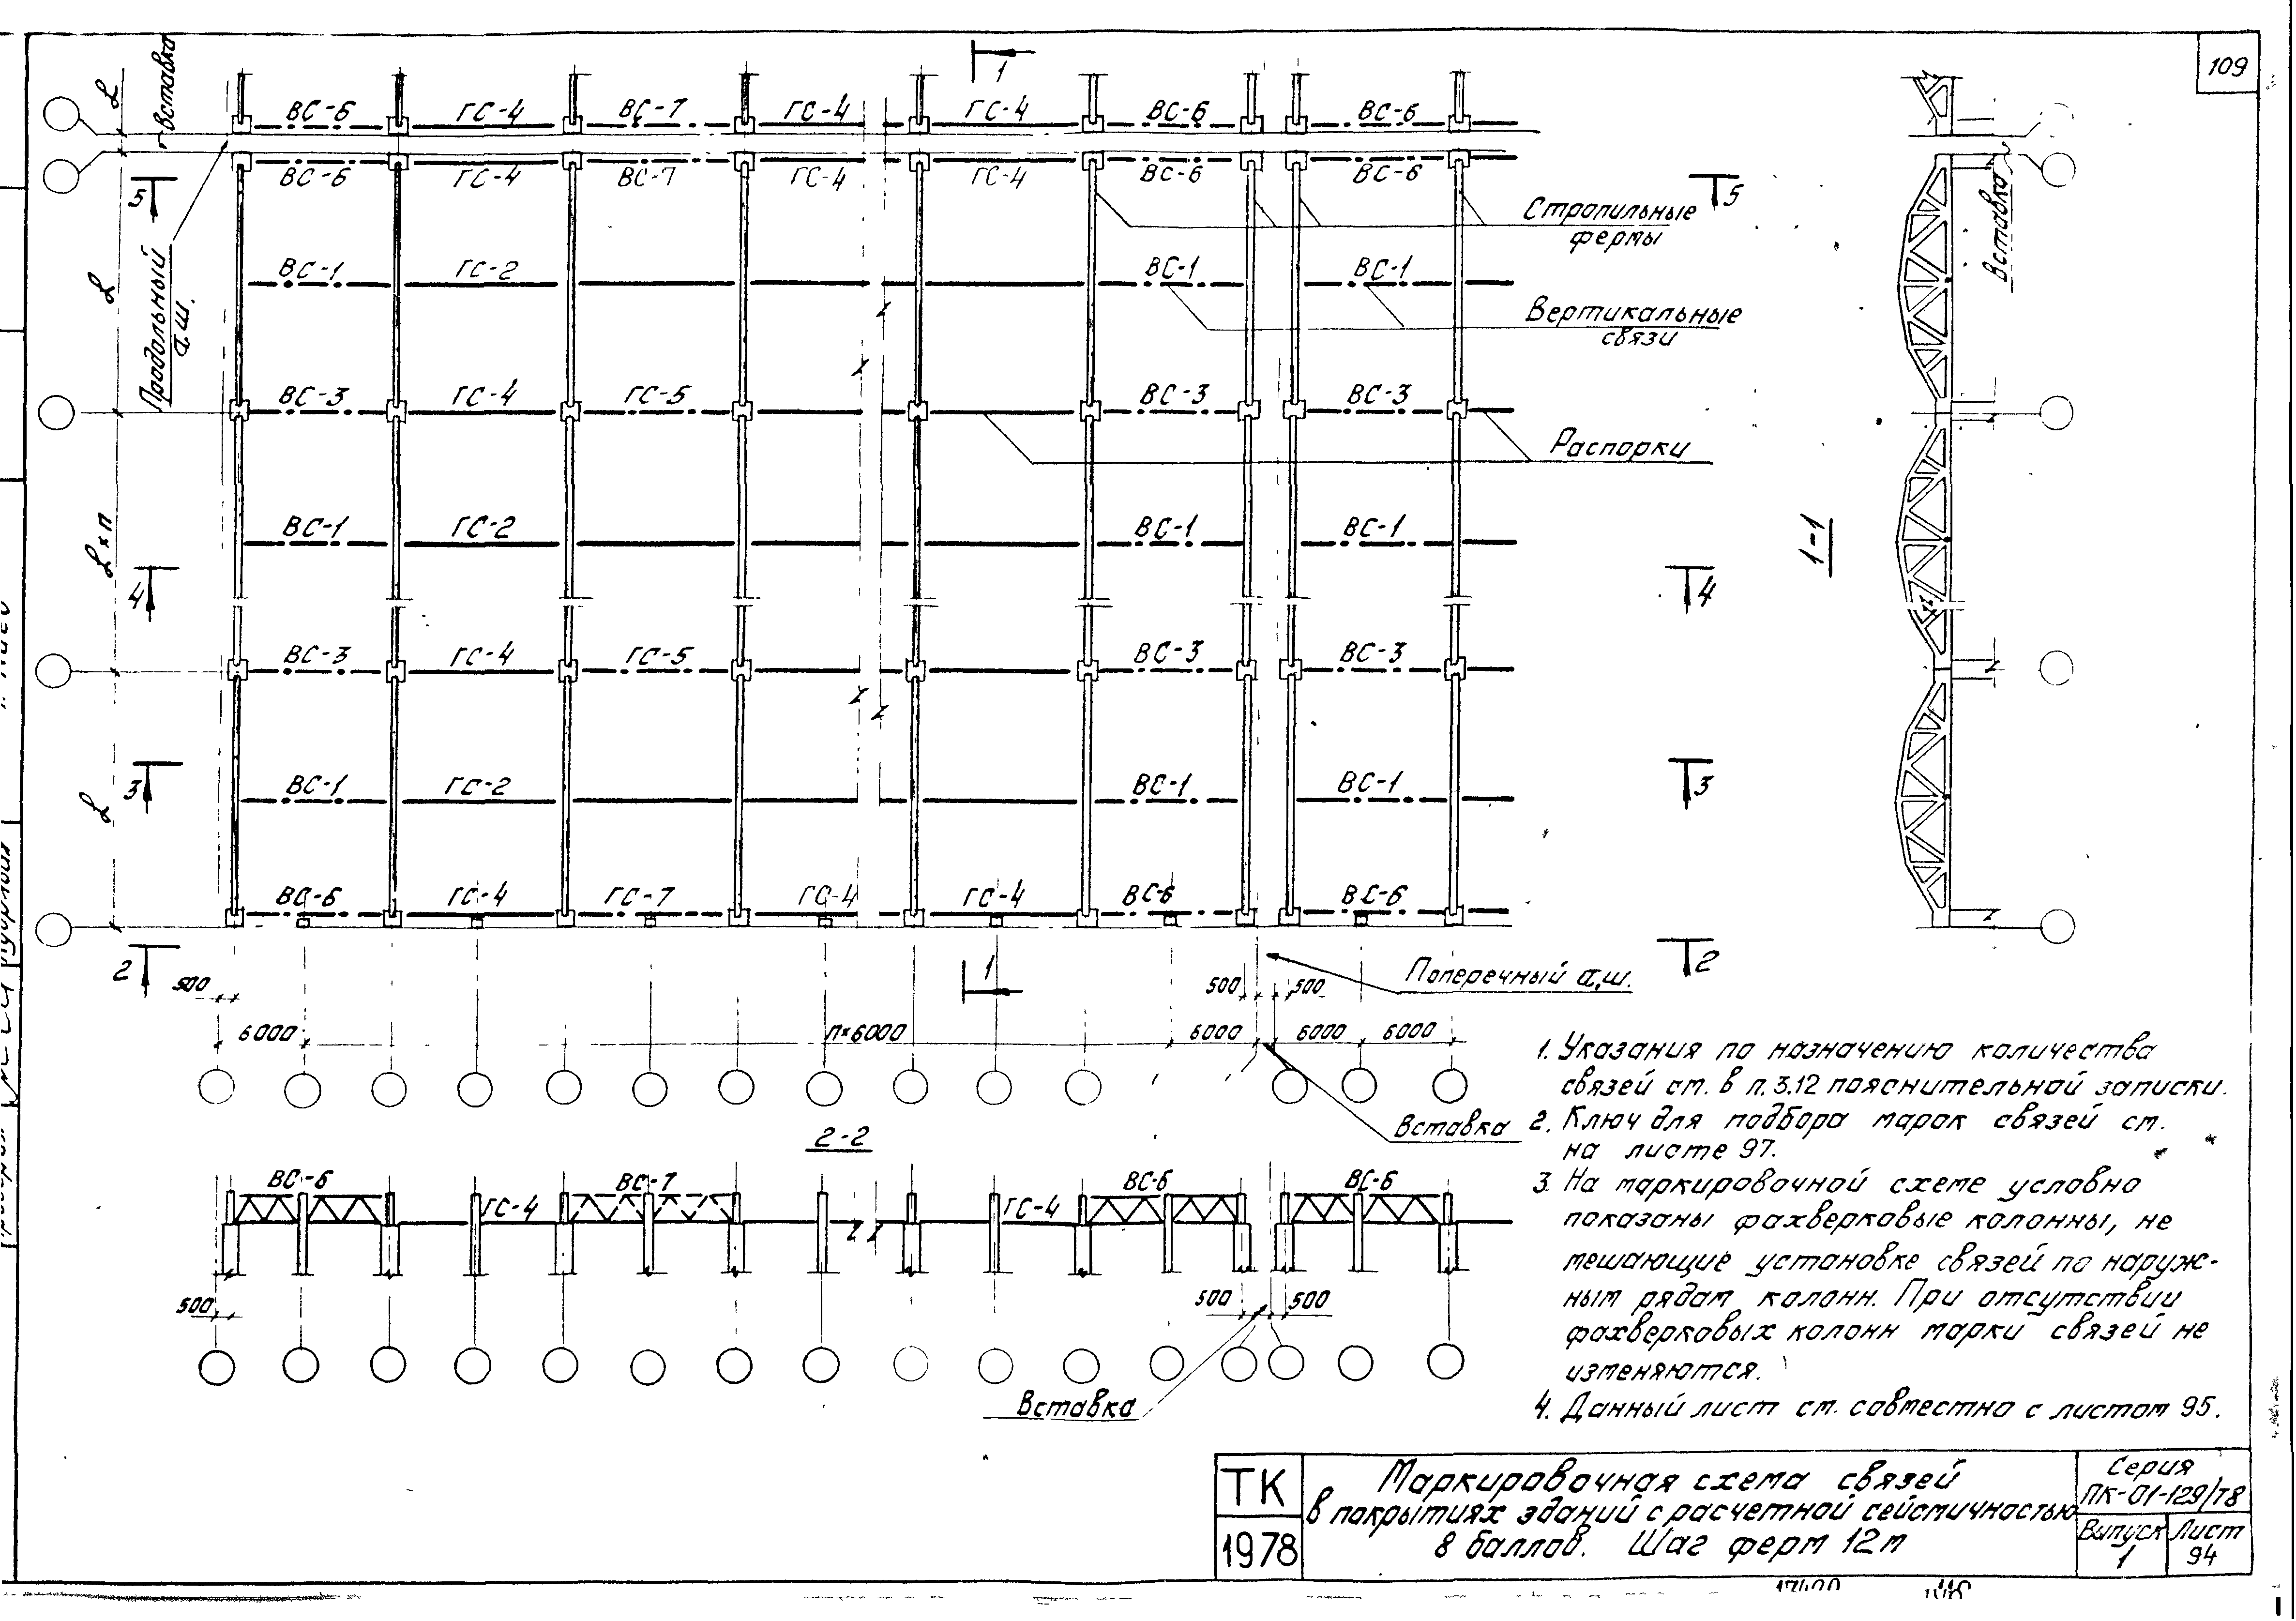 109
Вставка
1
ВС-6 ГС-4 ВС-7 ГС-4 ГС-4 ВС-6 ВС-6
ВС-6 ГС-4 ВС-7 ГС-4 ГС-4 ВС-6 ВС-6
5 5
Стропильные
фермы
Вставка
Продольный
а.ш.
L
L
ВС-1 ГС-2 ВС-1 ВС-1
Вертикальные
связи
ВС-3 ГС-4 ГС-5 ВС-3 ВС-3
Распорки
L×п
ВС-1 ГС-2 ВС-1 ВС-1
1-1
4 4
ВС-3 ГС-4 ГС-5 ВС-3 ВС-3
3 3
L
ВС-1 ГС-2 ВС-1 ВС-1
ВС-6 ГС-4 ГС-7 ГС-4 ГС-4 ВС-6 ВС-6
2 2
1
500 500 500
Поперечный а.ш.
6000 п×6000 6000 6000 6000
Вставка
2-2
ВС-6 ГС-4 ВС-7 ГС-4 ВС-6 ВС-6
500 500 500
Вставка
1. Указания по назначению количества
связей см. в п. 3.12 пояснительной записки.
2. Ключ для подбора марок связей см.
на листе 97.
3. На маркировочной схеме условно
показаны фахверковые колонны, не
мешающие установке связей по наруж-
ным рядам колонн. При отсутствии
фахверковых колонн марки связей не
изменяются.
4. Данный лист см. совместно с листом 95.
ТК
1978
Маркировочная схема связей
в покрытиях зданий с расчетной сейсмичностью
8 баллов. Шаг ферм 12м
Серия
ПК-01-129/78
Выпуск
1
Лист
94